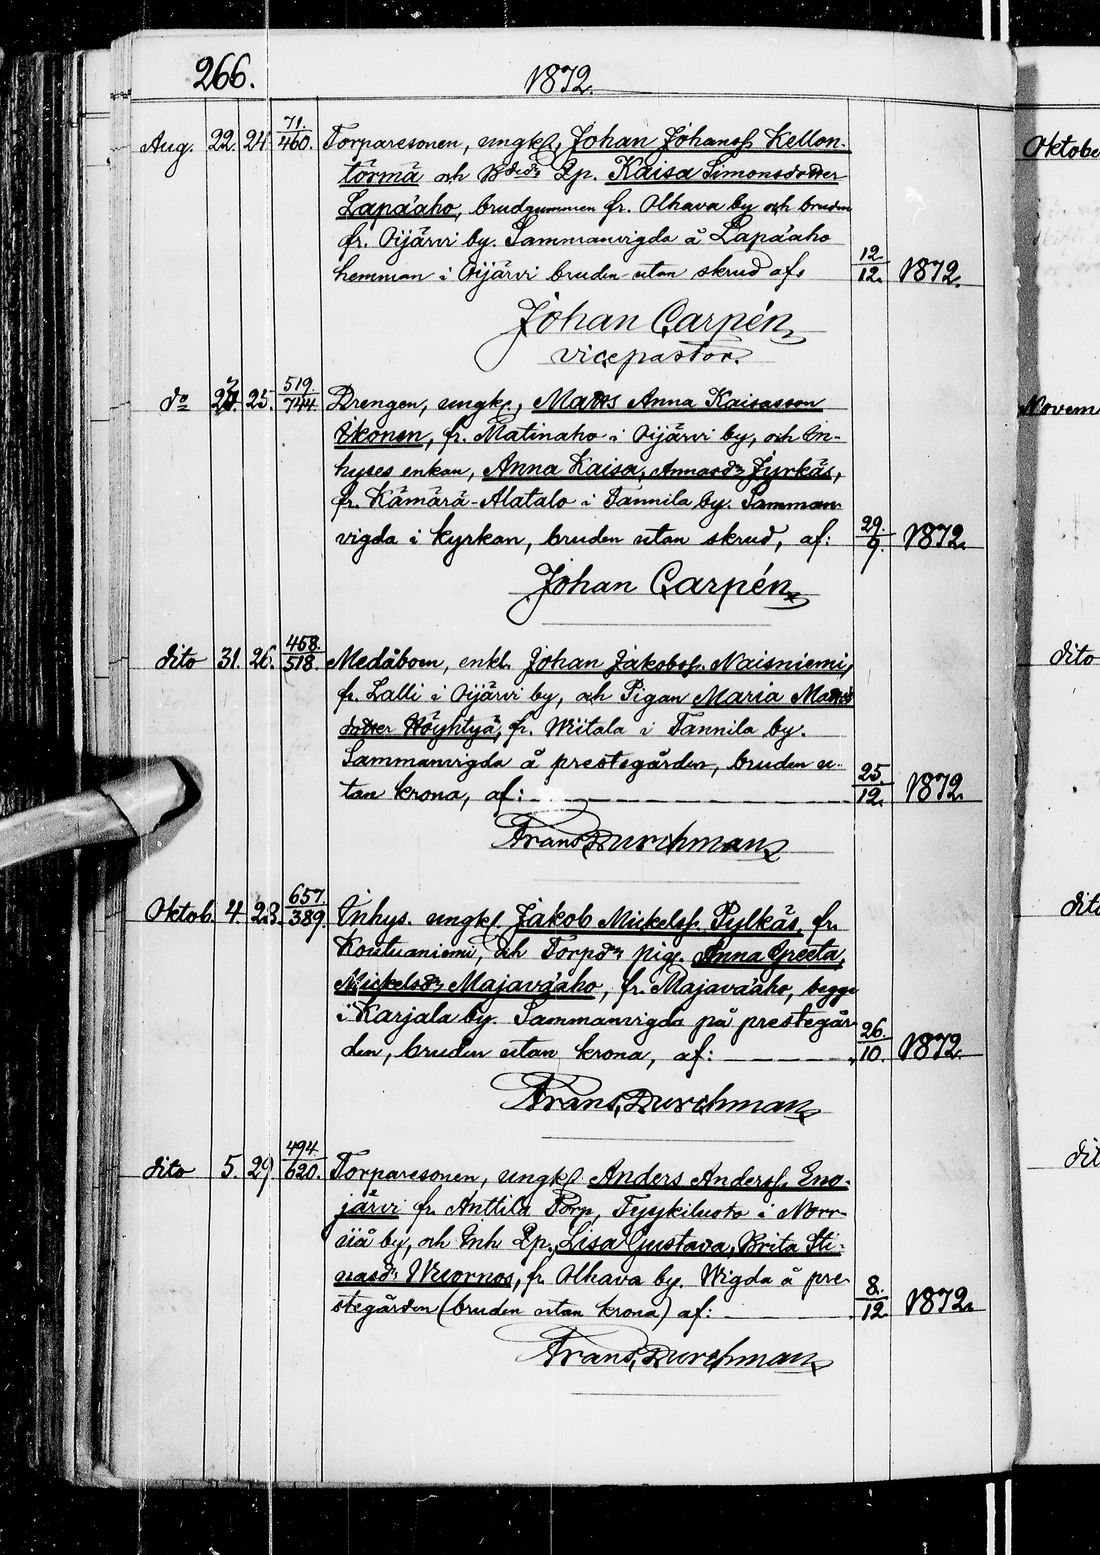 266.
1872.
Aug. 22. 24. 71./460. Torparesonen, ungkl, Johan Johanss Kellon-
törmä och Bdedr Pp. Kaisa Simonsdotter
Lapa'aho, brudgummen fr. Olhava by och bruden
fr. Oijärvi by. Sammanvigda å Lapa'aho
hemman i Oijärvi bruden utan skrud af: 12./12. 1872.
Johan Carpén
vicepastor.
do 25. 519./744. Drengen, ungk., Matts Anna Kaisasson
Ekonen, fr. Matinaho i Oijärvi by, och In-
hyses enkan, Anna Kaisa, Annasdr Jyrkäs,
fr. Kämärä-Alatalo i Tannila by. Samman-
vigda i kyrkan, bruden utan skrud, af: 29./9. 1872.
Johan Carpén
dito 31. 26. 458./518. Medåboen, enkl. Johan Jakobss. Naisniemi,
fr. Lalli i Oijärvi by, och Pigan Maria Matts
dotter Höyhtyä, fr. Wiitala i Tannila by.
Sammanvigda å prestegården, bruden u-
tan krona, af: 25./12. 1872.
Frans Durchman
Oktob. 4. 28. 657./389. Inhys. ungkl. Jakob Mickelss. Pylkäs, fr.
Koutuaniemi, och Torpdr pig. Anna Greeta,
Mickelsdr Majava'aho, fr. Majava'aho, begge
i Karjala by. Sammanvigda på prestegår-
den, bruden utan krona, af: 26./10. 1872.
Frans Durchman
dito 5. 29 494./620. Torparesonen, ungkl Anders Anderss. Eno-
järvi fr. Anttila Torp, Tyyskiluoto i Norr-
iiå by, och Inh. Pp. Lisa Gustava, Brita Sti-
nasdr Wuornos, fr. Olhava by. Wigda å pre-
stegården (bruden utan krona) af: 8./12 1872.
Frans Durchman
Oktober
Novem
dito
dito
dit